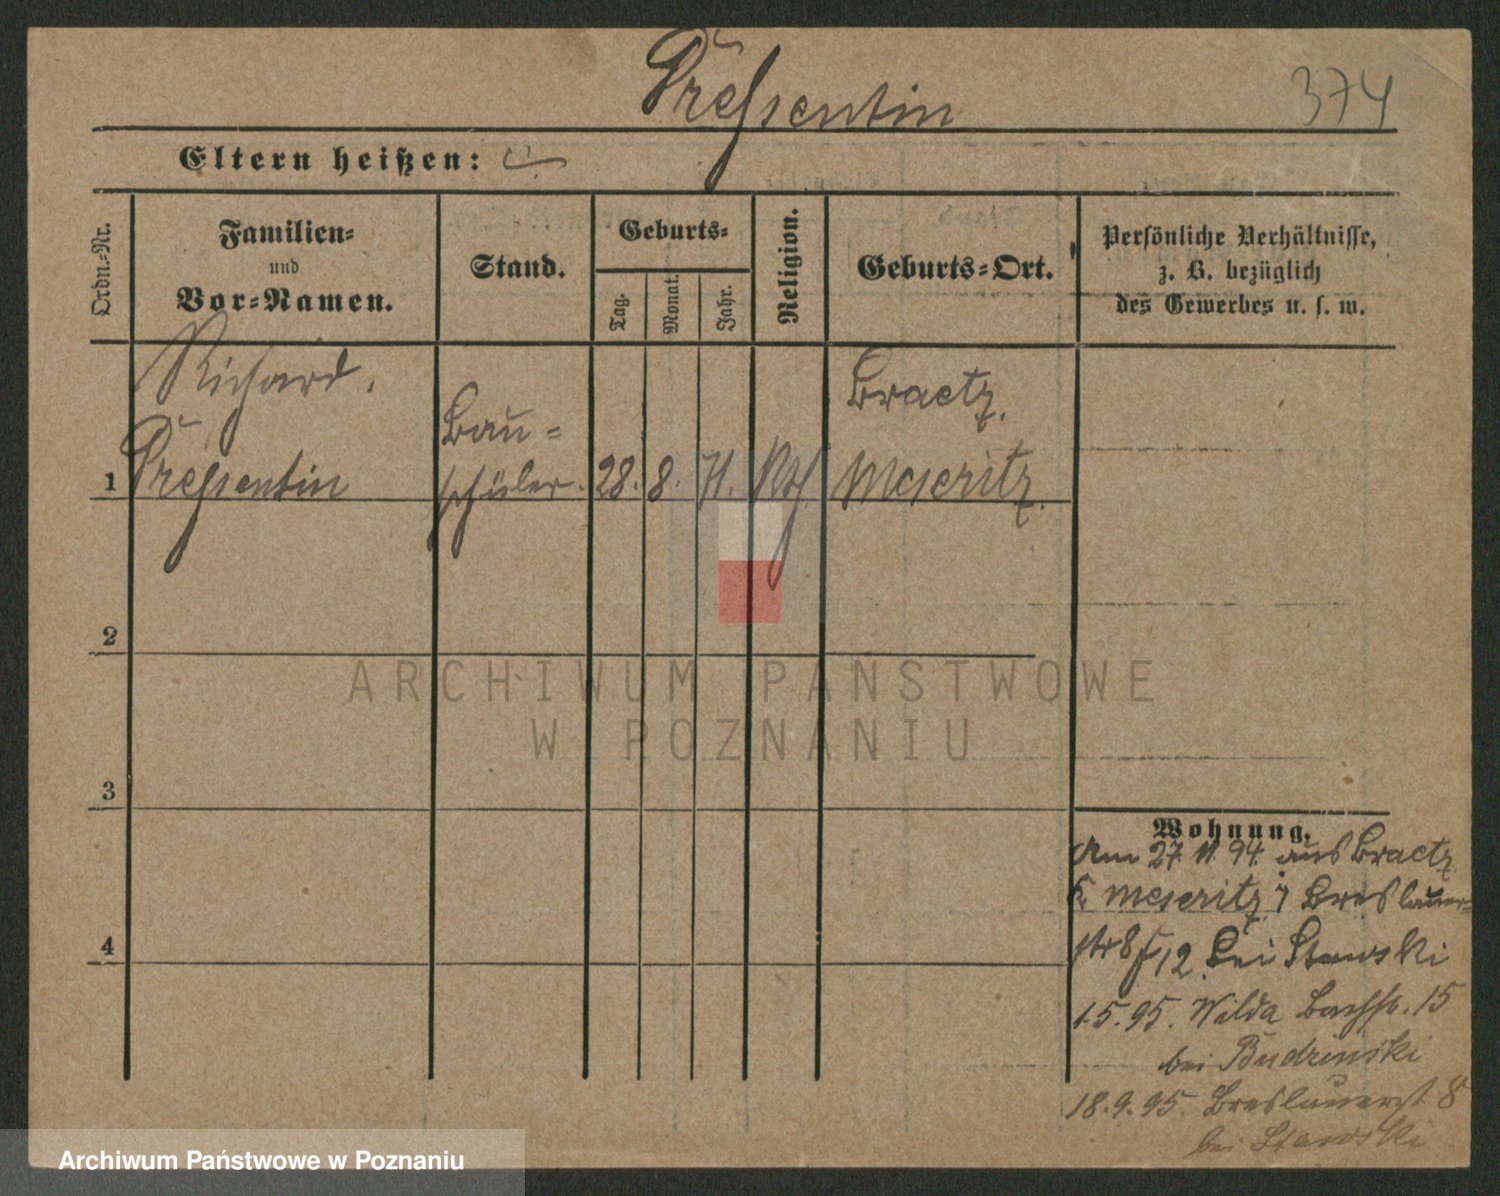 Pressentin
374
Eltern heißen:
Ordn.-Nr.
Familien-
und
Vor-Namen.
Stand.
Geburts-
Tag.
Monat.
Jahr.
Religion.
Geburts-Ort.
Persönliche Verhältnisse,
z. B. bezüglich
des Gewerbes u. s. w.
Richard.
Bractz.
Bau-
1 Pressentin schüler. 28. 8. 71. Kth. Meseritz.
2
ARCHIWUM PAŃSTWOWE
W POZNANIU
3
Wohnung.
Am 27. 11. 94. aus Bractz
Meseritz Breslauer-
str 8 12. bei Stawski
1.5.95. Wilda Bachstr. 15
bei Budzinski
18.9.95. Breslauerst. 8
bei Stawski
4
Archiwum Państwowe w Poznaniu